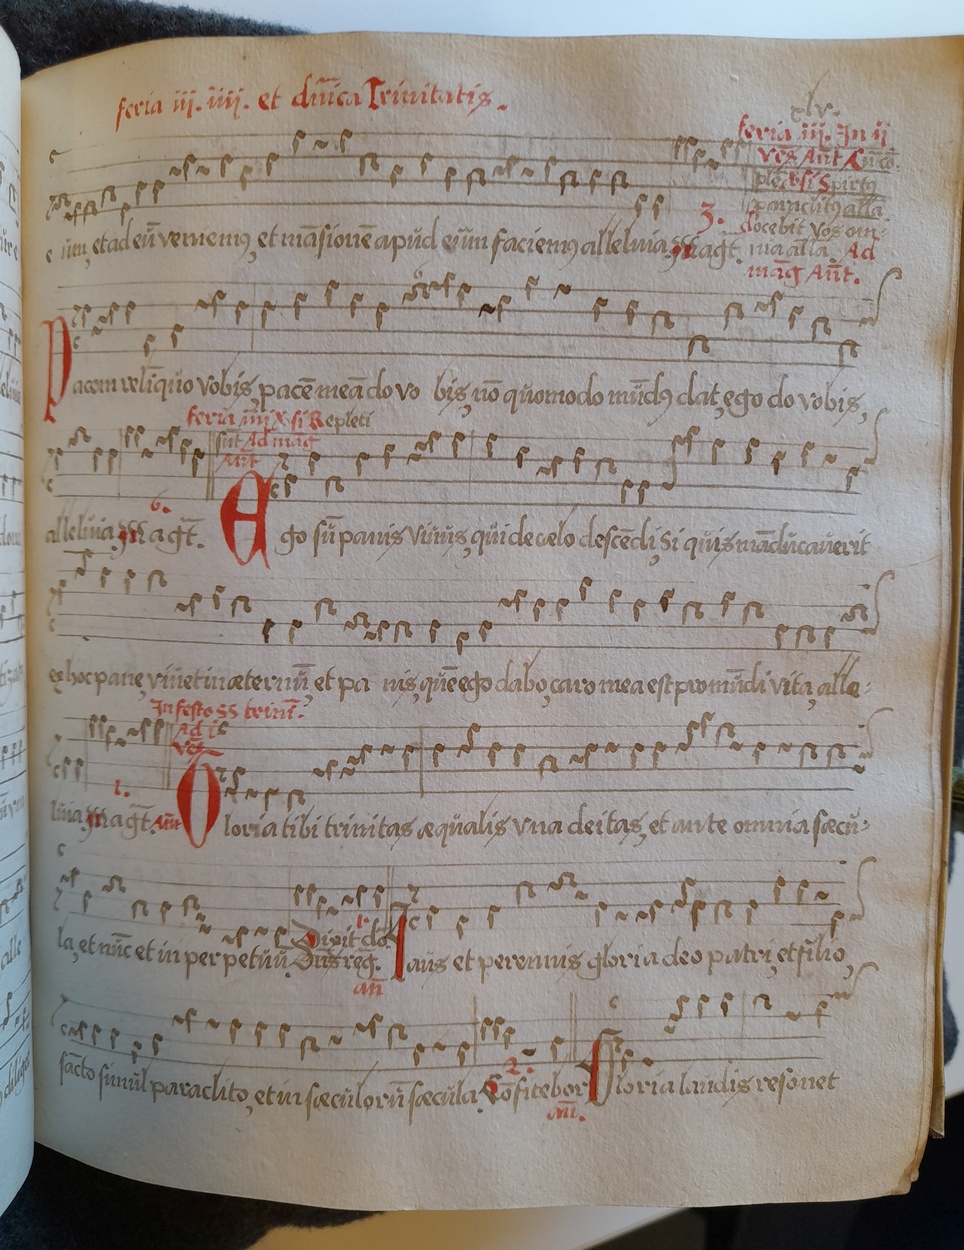 feria iij. iiij. et dñica Trinitatis.
xlv.
feria iij. In ij
Ves Añt &
ple. ℣si Spirtꝯ
paraclitꝯ alla
docebit vos om:
nia alla. Ad
mag Añt.
e um, et ad eū veniemꝯ, et māsionē apud eum faciemꝯ alleluia. 3. Magt.
Pacem reliquo vobis, pacē meā do vo bis, nō quomodo mūdꝯ dat, ego do vobis,
feria iiij ℣si Repleti
sūt Ad mag
Añt
alleluia. 6. Magt. Ego sū panis vivus, qui de celo descēdi, si quis māducaverit
ex hoc pane, vivet in æternū, et pa nis, quē ego dabo, caro mea est pro mūdi vita, alle:
In festo SS trinit.
Ad i
Ves
luia, 1. Magt. Añt Gloria tibi trinitas æqualis vna deitas, et ante omnia sæcu:
la, et nūc et in perpetuū. Dixit do 1.
Dñs reg. añ Laus et perennis gloria deo patri, et filio,
sācto simul paraclito, et in sæculorū sæcula. 2. Cōfitebor añ. Gloria laudis resonet